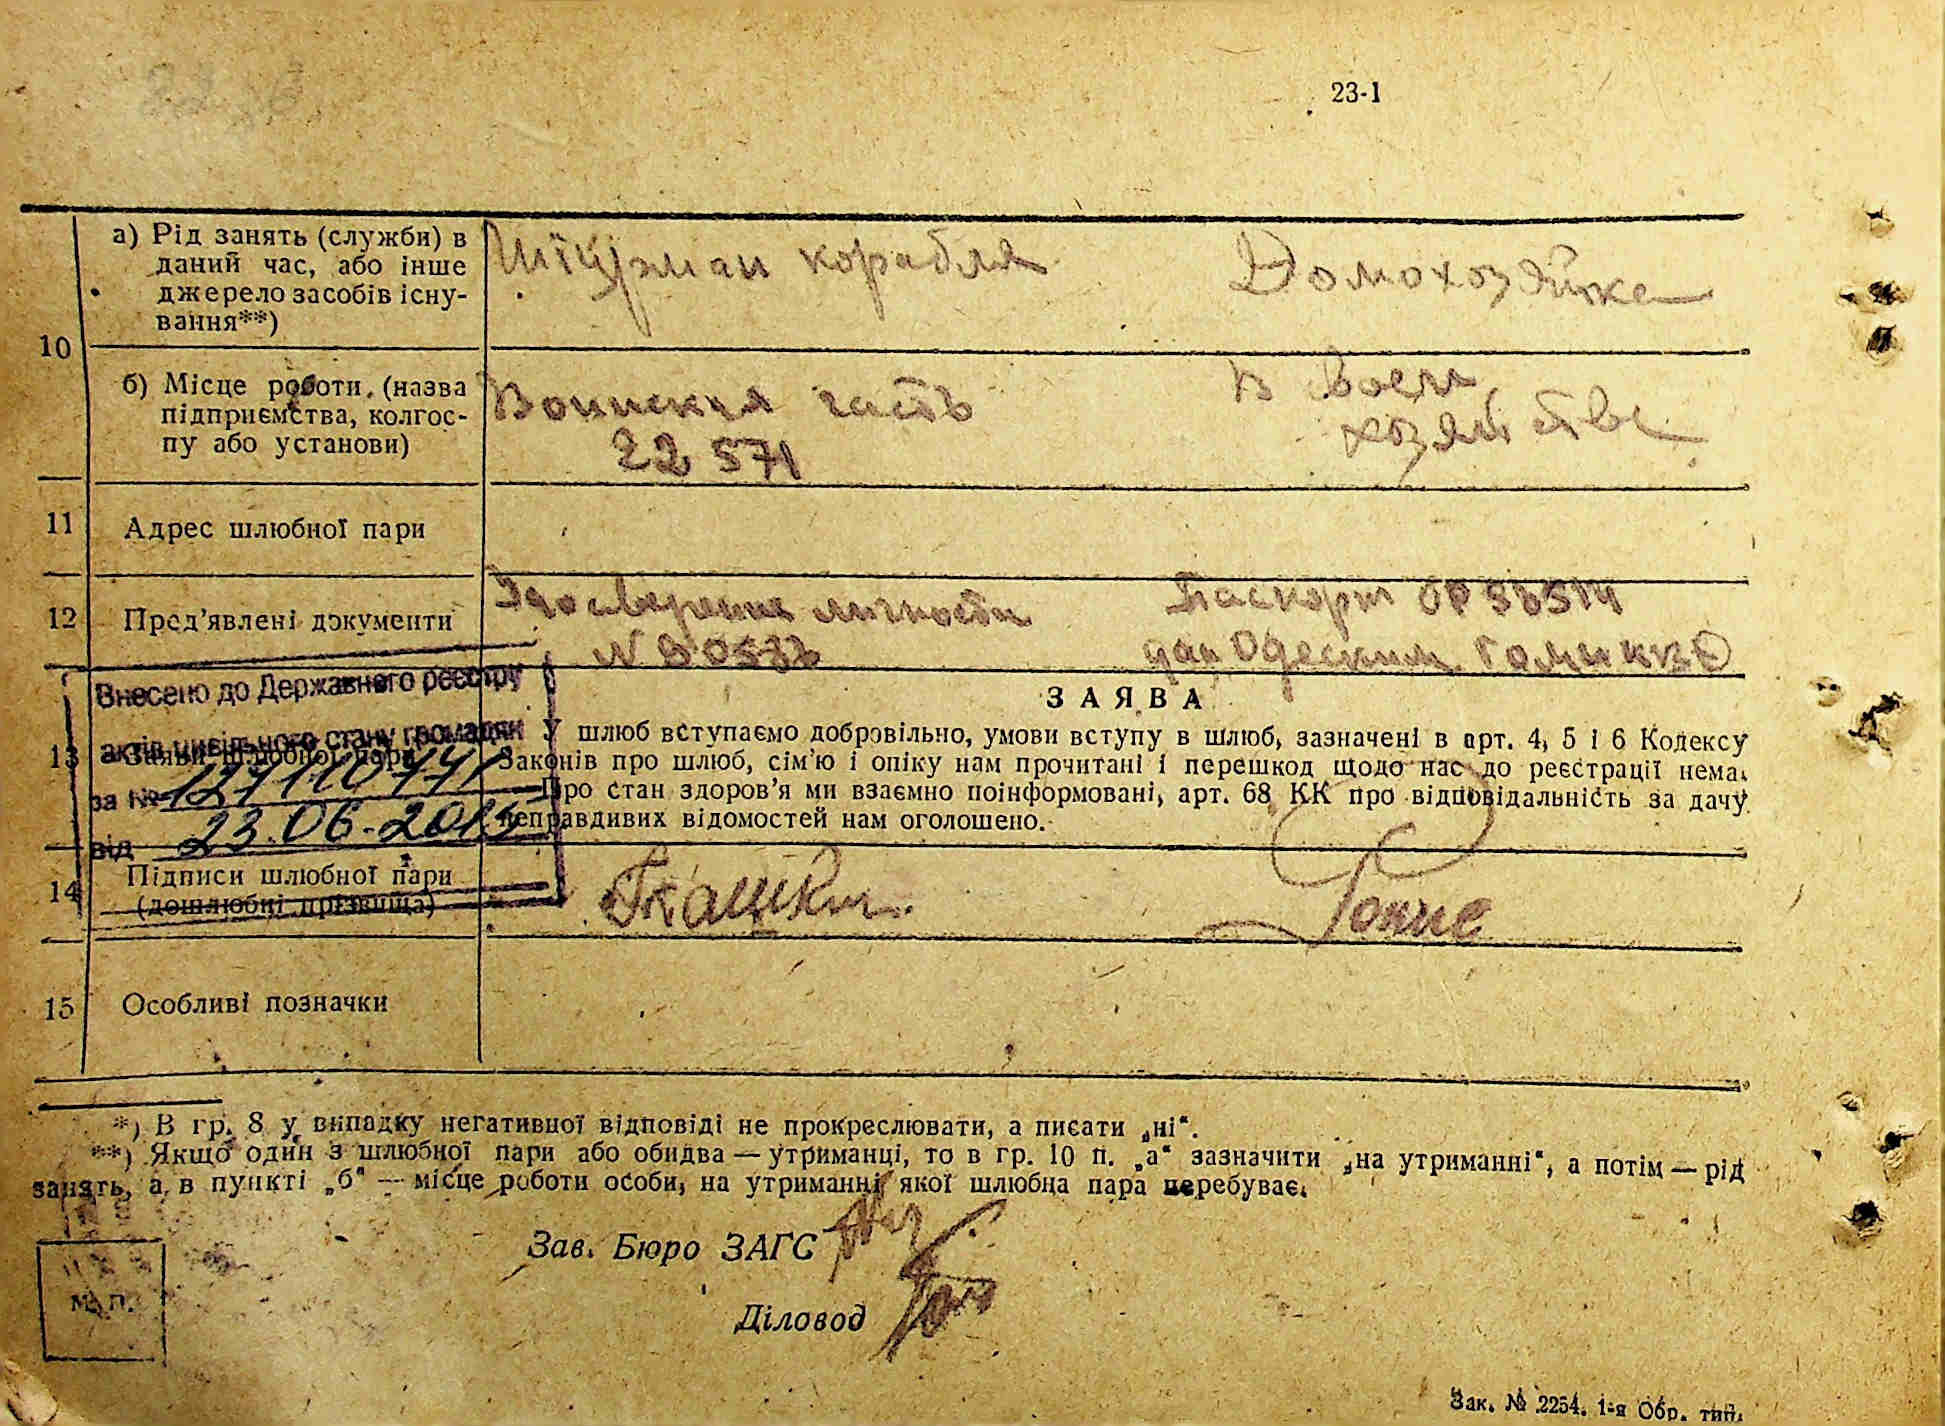 23-1
10
а) Рід занять (служби) в
даний час, або інше
джерело засобів існу-
вання**)
Штурман корабля
Домохозяйка
б) Місце роботи, (назва
підприємства, колгос-
пу або установи)
Воинская часть
22 571
В своем
хозяйстве
11
Адрес шлюбної пари
12
Пред'явлені документи
Удостверение личности
N
Паспорт
дан Одеским
13
Заяви шлюбної пари
Внесено до Державного реєстру
актів цивільного стану громадян
за №
від 23.06.2015
ЗАЯВА
У шлюб вступаємо добровільно, умови вступу в шлюб, зазначені в арт. 4, 5 і 6 Кодексу
Законів про шлюб, сім'ю і опіку нам прочитані і перешкод щодо нас до реєстрації нема.
Про стан здоров'я ми взаємно поінформовані, арт. 68 КК про відповідальність за дачу
неправдивих відомостей нам оголошено.
14
Підписи шлюбної пари
(дошлюбні прізвища)
15
Особливі позначки
*) В гр. 8 у випадку негативної відповіді не прокреслювати, а писати „ні“.
**) Якщо один з шлюбної пари або обидва — утриманці, то в гр. 10 п. „а“ зазначити „на утриманні“, а потім — рід
занять, а в пункті „б“ — місце роботи особи, на утриманні якої шлюбна пара перебуває.
Зав. Бюро ЗАГС
Діловод
М. П.
Зак. № 2254. 1-я Обр. тип.